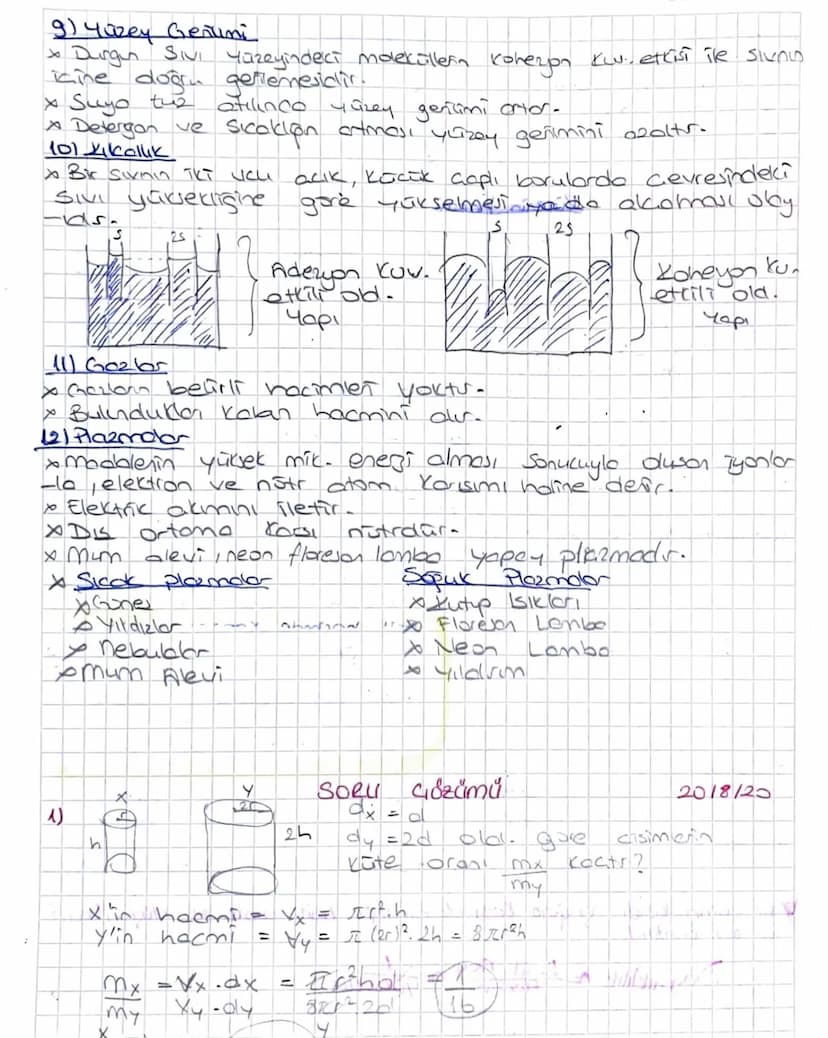 9) Yüzey Gerilimi
x Durgun sıvı yüzeyindeki moleküllerin kohezyon kuv. etkisi ile sıvının
içine doğru gerilmesidir.
x Suya tuz atılınca yüzey gerilimi artar.
x Detergan ve sıcaklığın artması yüzey gerilimini azaltır.
10) Kılcallık
x Bir sıvının iki ucu açık, küçük çaplı borularda çevresindeki
sıvı yüksekliğine göre yükselmesi ya da alçalması olay
-ıdır.
S 2S
S 2S
Adezyon kuv.
etkili old.
Yapı
Kohezyon ku.
etkili old.
Yapı
11) Gazlar
x Gazların belirli hacimleri yoktur.
x Bulundukları kabın hacmini alır.
12) Plazmalar
x Maddelerin yüksek mik. enerji alması sonucuyla oluşan iyonlar
-la, elektron ve nötr atom karışımı haline denir.
x Elektrik akımını iletir.
x Dış ortama karşı nötrdür.
x Mum alevi, neon floresan lamba yapay plazmadır.
x Sıcak plazmalar Soğuk Plazmalar
x Güneş x Kutup Işıkları
x Yıldızlar x Floresan Lamba
x Nebulalar x Neon Lamba
x Mum Alevi x Yıldırım
SORU ÇÖZÜMÜ 2018/20
1) x r h
y 2r 2h
dx = d
dy = 2d old. göre cisimlerin
kütle oranı mx/my kaçtır?
x'in hacmi = Vx = πr².h
y'in hacmi = Vy = π(2r)².2h = 8πr²h
mx/my = Vx.dx/Vy.dy = πr²hd/8πr².2d = 1/16
y
x